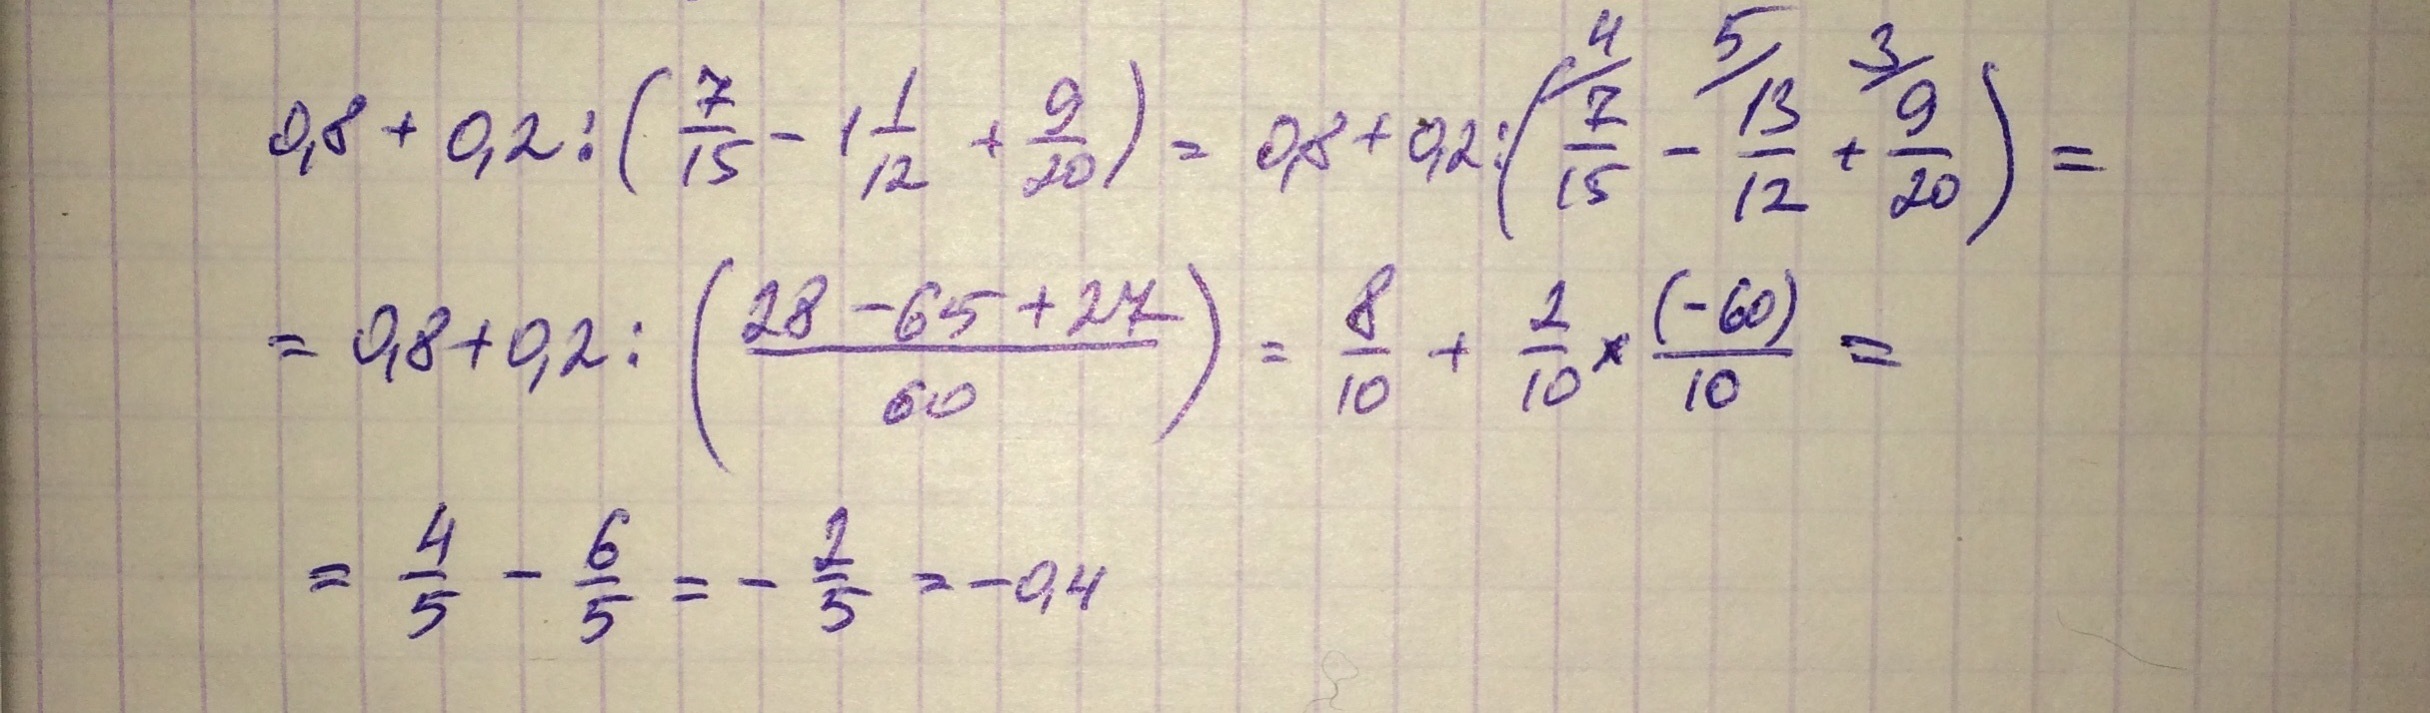 0,8 + 0,2 : (7/15 - 1 1/12 + 9/20) = 0,8 + 0,2 : (4/ 7/15 - 5/ 13/12 + 3/ 9/20) =
= 0,8 + 0,2 : ((28 - 65 + 27)/60) = 8/10 + 2/10 × (-60)/10 =
= 4/5 - 6/5 = - 2/5 = -0,4